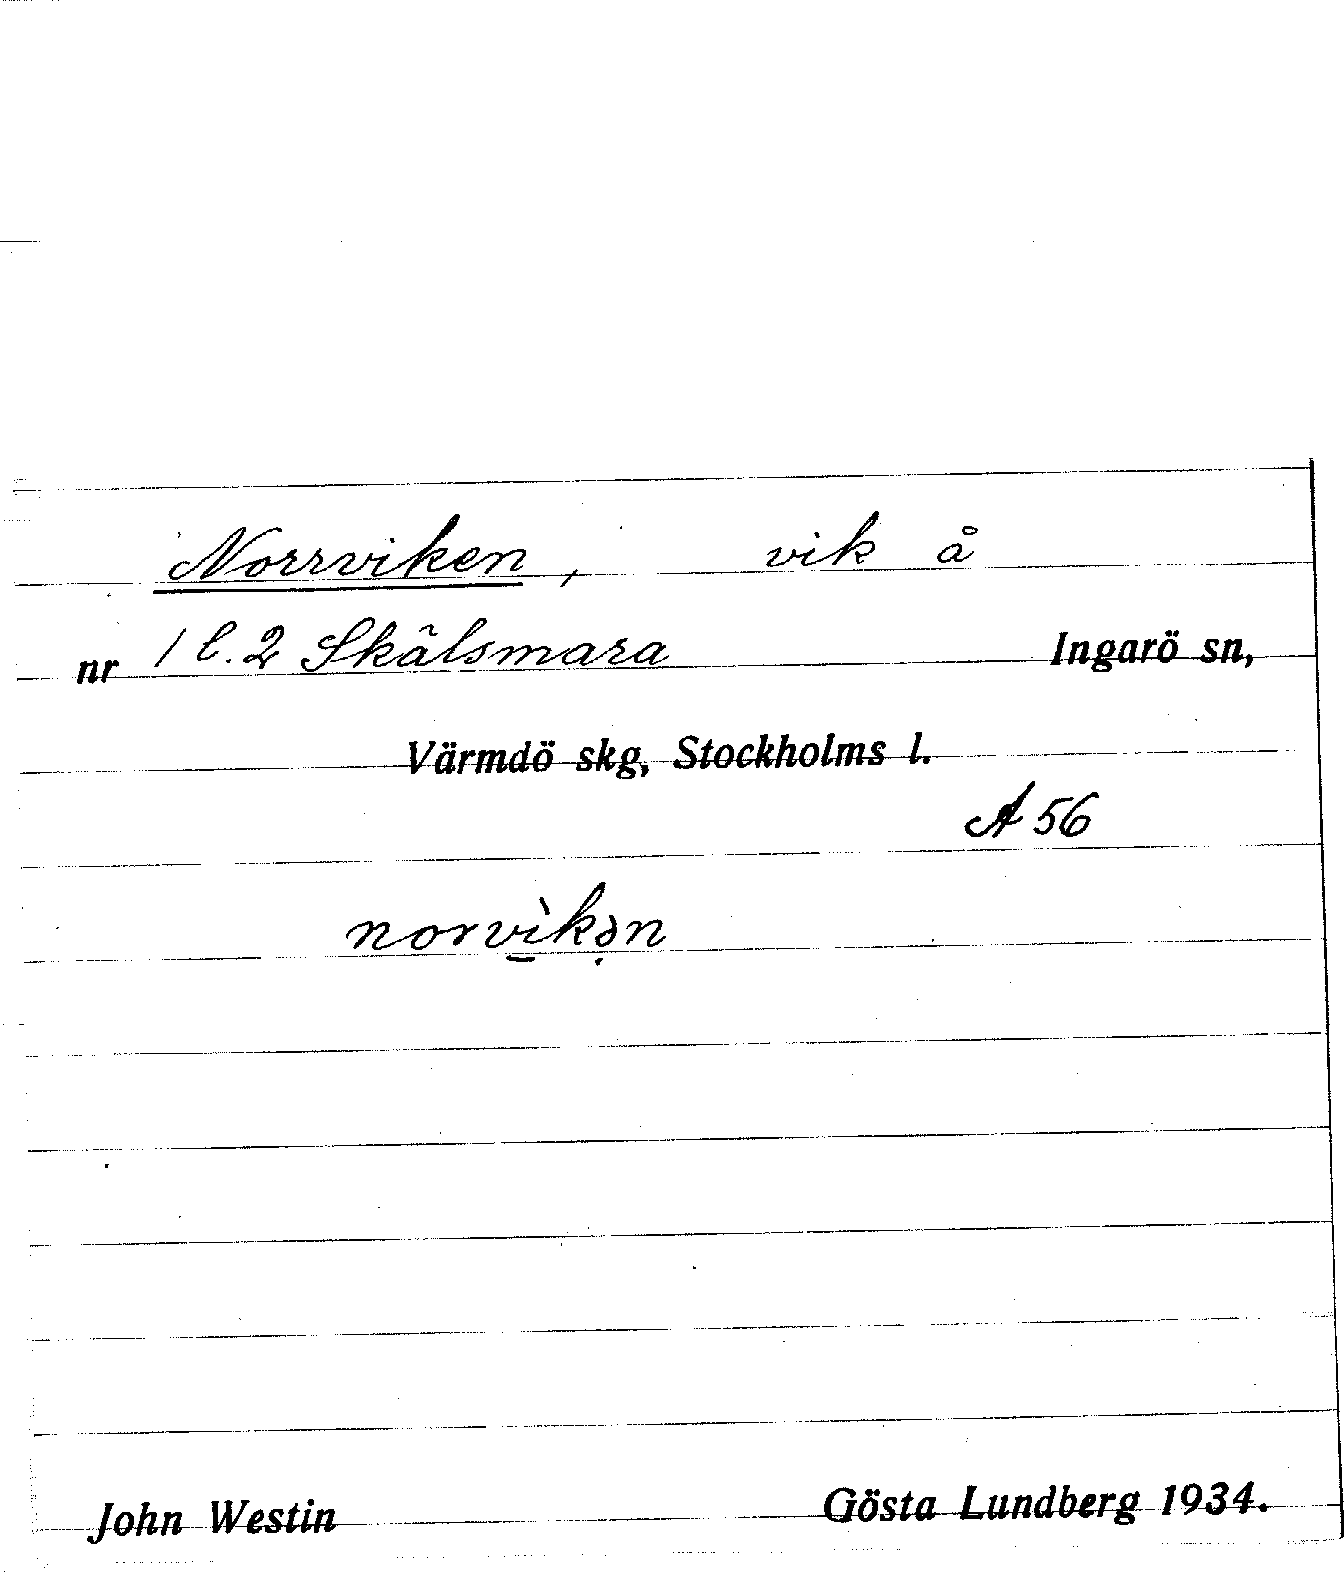 Norrviken, vik å
nr 1 l. 2 Skälsmara Ingarö sn,
Värmdö skg, Stockholms l.
A 56
norvìkən
John Westin Gösta Lundberg 1934.